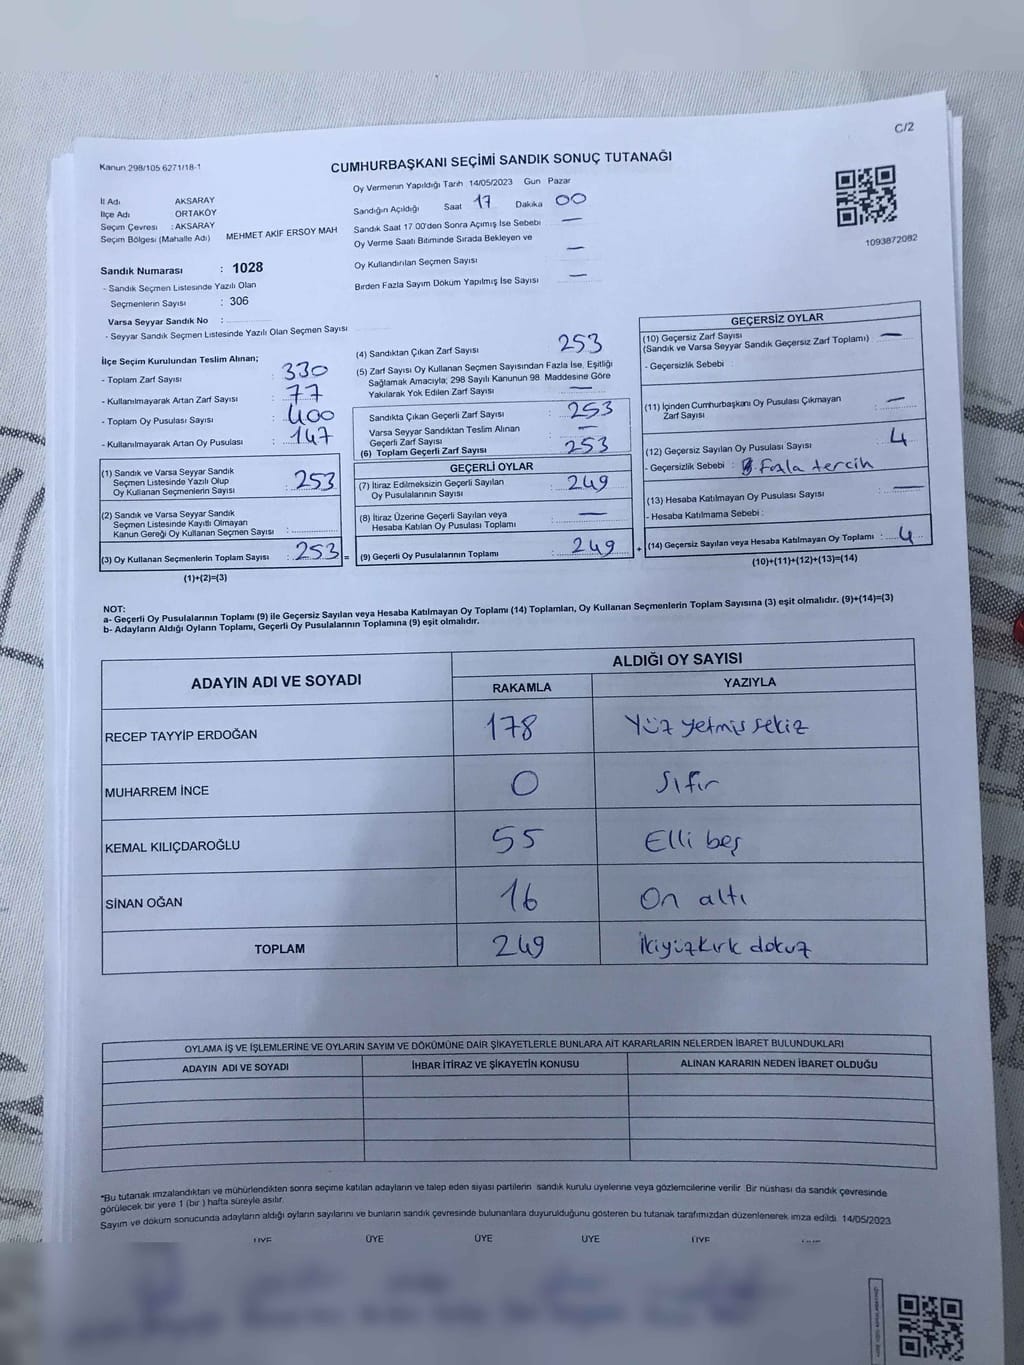 C/2
Kanun 298/105 6271/18-1
CUMHURBAŞKANI SEÇİMİ SANDIK SONUÇ TUTANAĞI
Oy Vermenin Yapıldığı Tarih 14/05/2023 Gün Pazar
İl Adı AKSARAY
İlçe Adı ORTAKÖY
Seçim Çevresi : AKSARAY
Seçim Bölgesi (Mahalle Adı) MEHMET AKİF ERSOY MAH
Sandığın Açıldığı Saat 17 Dakika 00
Sandık Saat 17.00'den Sonra Açımış İse Sebebi —
Oy Verme Saati Bitiminde Sırada Bekleyen ve
Oy Kullandırılan Seçmen Sayısı —
Birden Fazla Sayım Döküm Yapılmış İse Sayısı —
1093872082
Sandık Numarası : 1028
- Sandık Seçmen Listesinde Yazılı Olan
Seçmenlerin Sayısı : 306
Varsa Seyyar Sandık No :
- Seyyar Sandık Seçmen Listesinde Yazılı Olan Seçmen Sayısı
İlçe Seçim Kurulundan Teslim Alınan;
- Toplam Zarf Sayısı : 330
- Kullanılmayarak Artan Zarf Sayısı : 77
- Toplam Oy Pusulası Sayısı : 400
- Kullanılmayarak Artan Oy Pusulası : 147
(1) Sandık ve Varsa Seyyar Sandık
Seçmen Listesinde Yazılı Olup
Oy Kullanan Seçmenlerin Sayısı : 253
(2) Sandık ve Varsa Seyyar Sandık
Seçmen Listesinde Kayıtlı Olmayan
Kanun Gereği Oy Kullanan Seçmen Sayısı :
(3) Oy Kullanan Seçmenlerin Toplam Sayısı : 253 =
(1)+(2)=(3)
(4) Sandıktan Çıkan Zarf Sayısı 253
(5) Zarf Sayısı Oy Kullanan Seçmen Sayısından Fazla İse, Eşitliği
Sağlamak Amacıyla; 298 Sayılı Kanunun 98. Maddesine Göre
Yakılarak Yok Edilen Zarf Sayısı —
Sandıkta Çıkan Geçerli Zarf Sayısı : 253
Varsa Seyyar Sandıktan Teslim Alınan
Geçerli Zarf Sayısı : —
(6) Toplam Geçerli Zarf Sayısı : 253
GEÇERLİ OYLAR
(7) İtiraz Edilmeksizin Geçerli Sayılan
Oy Pusulalarının Sayısı : 249
(8) İtiraz Üzerine Geçerli Sayılan veya
Hesaba Katılan Oy Pusulası Toplamı : —
(9) Geçerli Oy Pusulalarının Toplamı : 249 +
GEÇERSİZ OYLAR
(10) Geçersiz Zarf Sayısı
(Sandık ve Varsa Seyyar Sandık Geçersiz Zarf Toplamı) —
- Geçersizlik Sebebi
(11) İçinden Cumhurbaşkanı Oy Pusulası Çıkmayan
Zarf Sayısı : —
(12) Geçersiz Sayılan Oy Pusulası Sayısı : 4
- Geçersizlik Sebebi : Fazla tercih
(13) Hesaba Katılmayan Oy Pusulası Sayısı : —
- Hesaba Katılmama Sebebi :
(14) Geçersiz Sayılan veya Hesaba Katılmayan Oy Toplamı : 4
(10)+(11)+(12)+(13)=(14)
NOT:
a- Geçerli Oy Pusulalarının Toplamı (9) ile Geçersiz Sayılan veya Hesaba Katılmayan Oy Toplamı (14) Toplamları, Oy Kullanan Seçmenlerin Toplam Sayısına (3) eşit olmalıdır. (9)+(14)=(3)
b- Adayların Aldığı Oyların Toplamı, Geçerli Oy Pusulalarının Toplamına (9) eşit olmalıdır.
ADAYIN ADI VE SOYADI
ALDIĞI OY SAYISI
RAKAMLA YAZIYLA
RECEP TAYYİP ERDOĞAN 178 Yüz yetmiş sekiz
MUHARREM İNCE 0 Sıfır
KEMAL KILIÇDAROĞLU 55 Elli beş
SİNAN OĞAN 16 On altı
TOPLAM 249 İkiyüzkırk dokuz
OYLAMA İŞ VE İŞLEMLERİNE VE OYLARIN SAYIM VE DÖKÜMÜNE DAİR ŞİKAYETLERLE BUNLARA AİT KARARLARIN NELERDEN İBARET BULUNDUKLARI
ADAYIN ADI VE SOYADI İHBAR İTİRAZ VE ŞİKAYETİN KONUSU ALINAN KARARIN NEDEN İBARET OLDUĞU
*Bu tutanak imzalandıktan ve mühürlendikten sonra seçime katılan adayların ve talep eden siyasi partilerin sandık kurulu üyelerine veya gözlemcilerine verilir. Bir nüshası da sandık çevresinde
görülecek bir yere 1 (bir) hafta süreyle asılır.
Sayım ve döküm sonucunda adayların aldığı oyların sayılarını ve bunların sandık çevresinde bulunanlara duyurulduğunu gösteren bu tutanak tarafımızdan düzenlenerek imza edildi. 14/05/2023
ÜYE ÜYE ÜYE ÜYE ÜYE